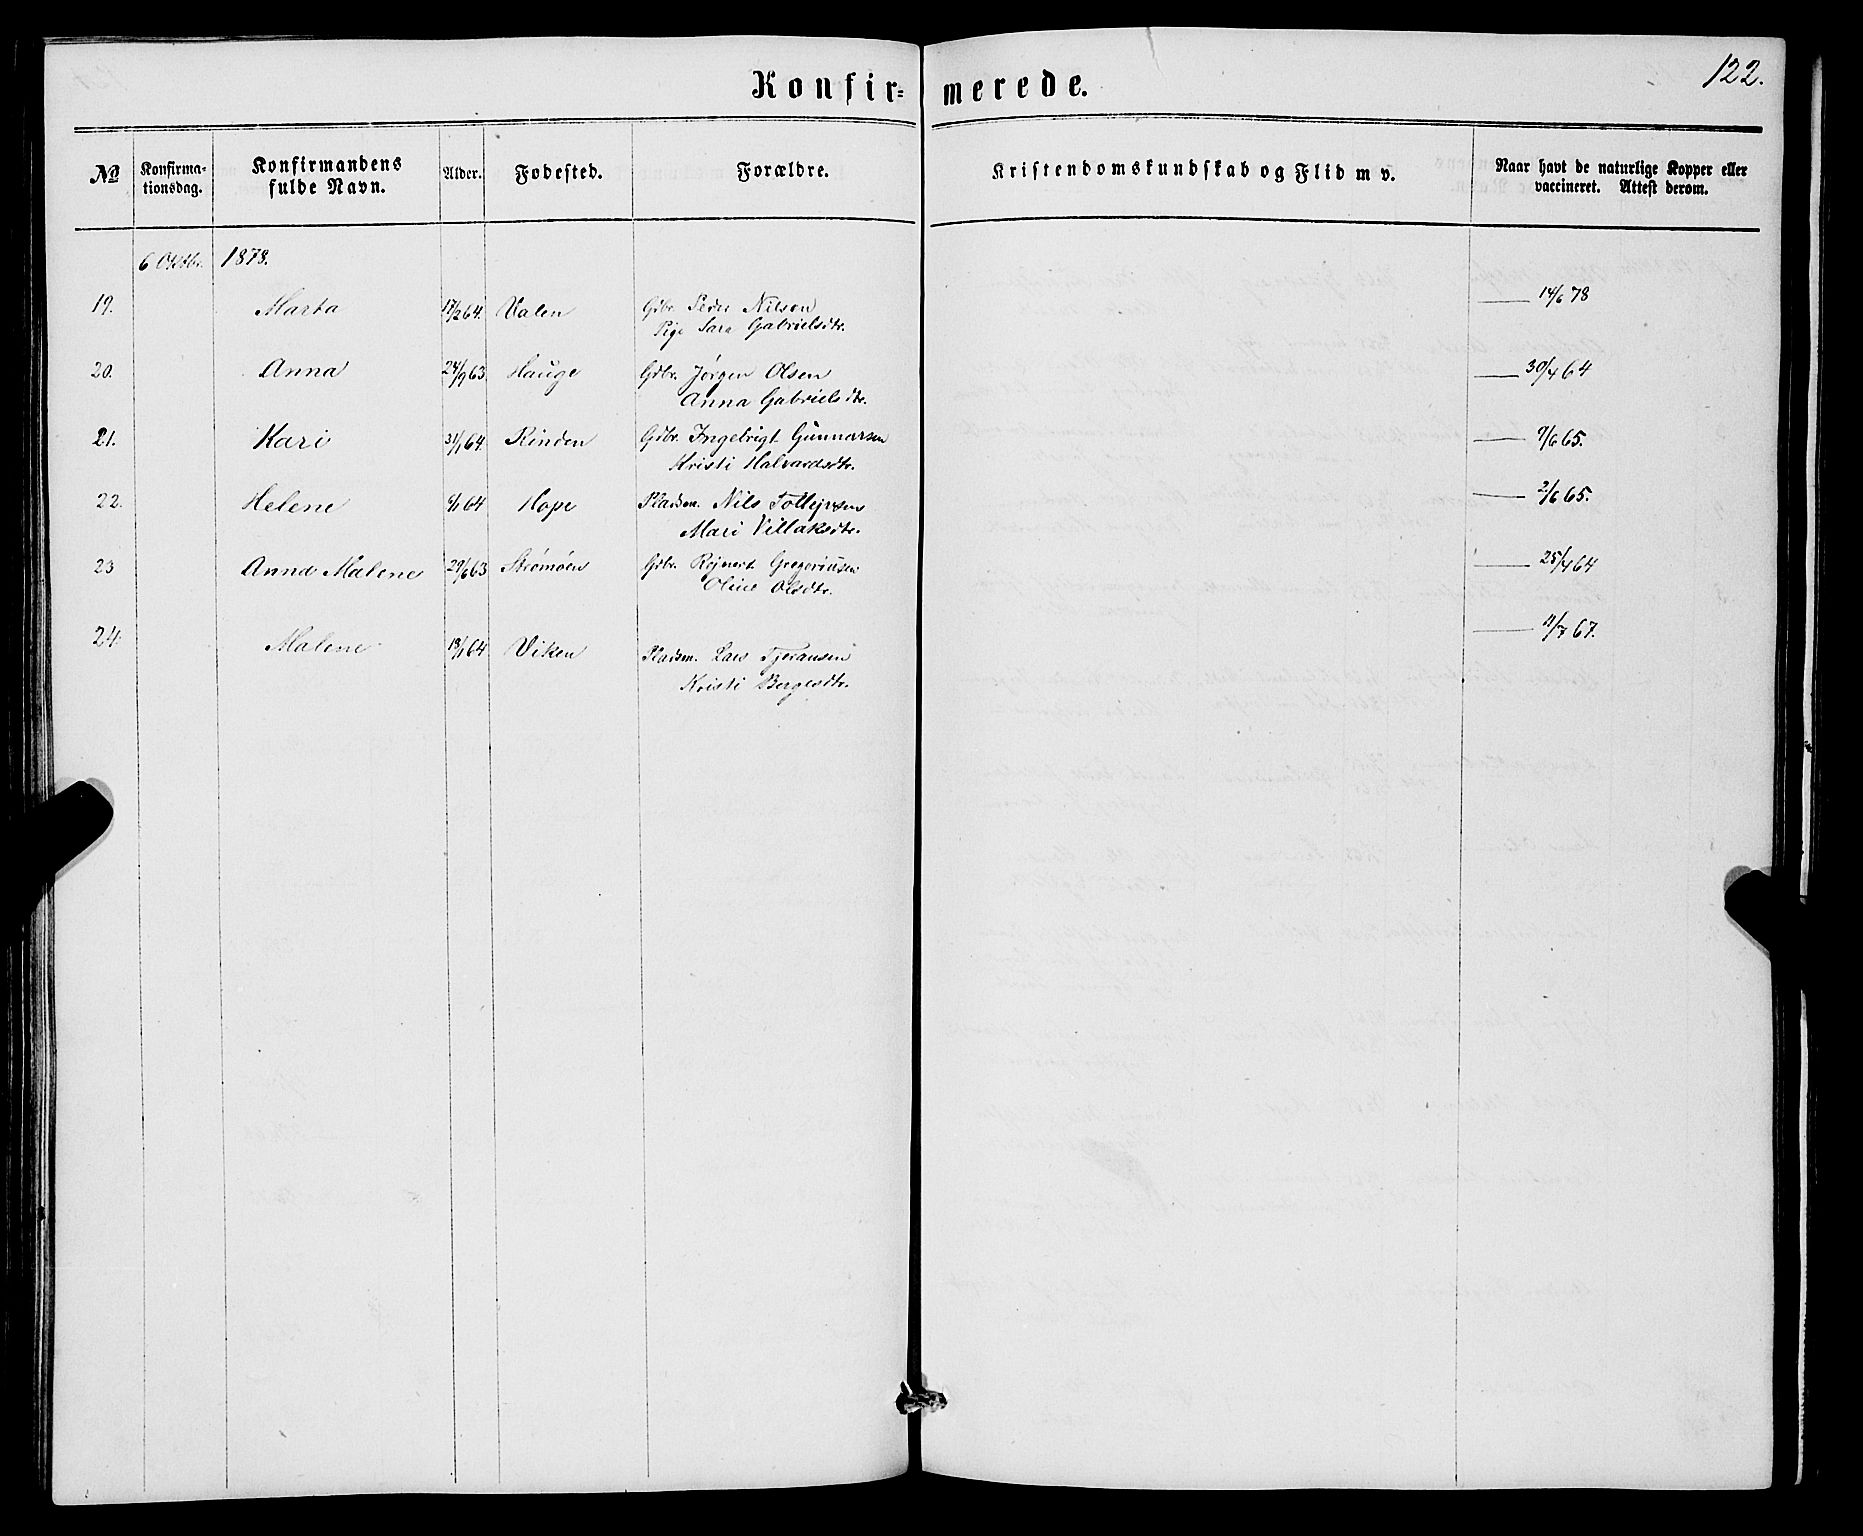 122.
Konfir= merede.
№ Konfirma-tionsdag. Konfirmandens fulde Navn. Alder. Fødested. Forældre. Kristendomskundskab og Flid m v. Naar havt de naturlige Kopper eller vaccineret. Attest derom.
6 Oktbr. 1878.
19. Marta 17/2 64. Valen Gdbr. Peder Nilson 14/6 78
Pige Sara Gabrielsdtr.
20. Anna 24/9 63. Hauge Gdbr. Jørgen Olsen 30/4 64
Anna Gabrielsdtr.
21. Kari 31/1 64. Rinden Gdbr. Ingebrigt Gunnarsen 9/6 65.
Kristi Halvardsdtr.
22. Helene 6/1 64 Hope Pladsm. Nils Tollejvsen 2/6 65.
Mari Villaksdtr.
23 Anna Malene 29/6 63 Strømøen Gdbr. Rejnert Gregoriusen 25/4 64
Oline Olsdtr.
24. Malene 13/1 64 Viken Pladsm. Lars Tjeransen 11/7 67.
Kristi Bergesdtr.